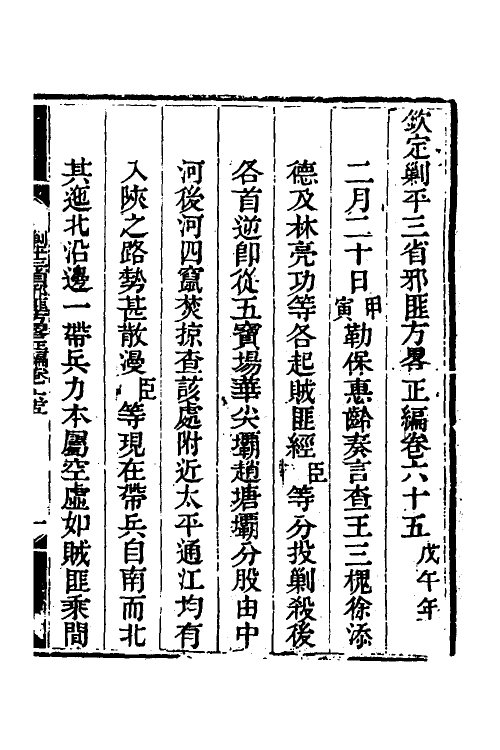 欽定剿平三省邪匪方畧正編卷六十五 戊午年
二月二十日甲寅勒保惠齡奏言查王三槐徐添
德及林亮功等各起賊匪經臣等分投剿殺後
各首逆卽從五寶場華尖壩趙塘壩分股由中
河後河四竄焚掠查該處附近太平通江均有
入陜之路勢甚散漫臣等現在帶兵自南而北
其迤北沿邊一帶兵力本屬空虛如賊匪乘間